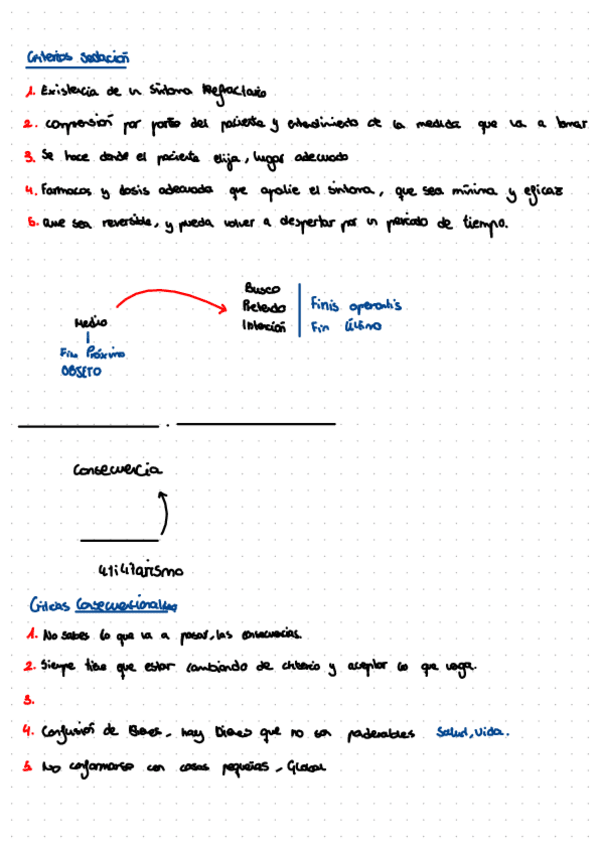 Criterios sedación
1. Existencia de un síntoma Refractario
2. comprensión por parte del paciente y entendimiento de la medida que va a tomar
3. Se hace donde el paciente elija, lugar adecuado
4. Farmacos y dosis adecuada que apalie el síntoma, que sea mínima y eficaz
5. que sea reversible, y pueda volver a despertar por un periodo de tiempo.
Busco
Pretendo
Intención
Finis operantis
Fin Último
Medio
Fin Próximo
OBJETO
Consecuencia
utilitarismo
Críticas Consecuencialismo
1. No sabes lo que va a pasar, las consecuencias.
2. Siempre tiene que estar cambiando de criterio y aceptar lo que venga.
3.
4. Confusión de Bienes, hay bienes que no son ponderables Salud, vida.
5. No conformarse con cosas pequeñas, Global